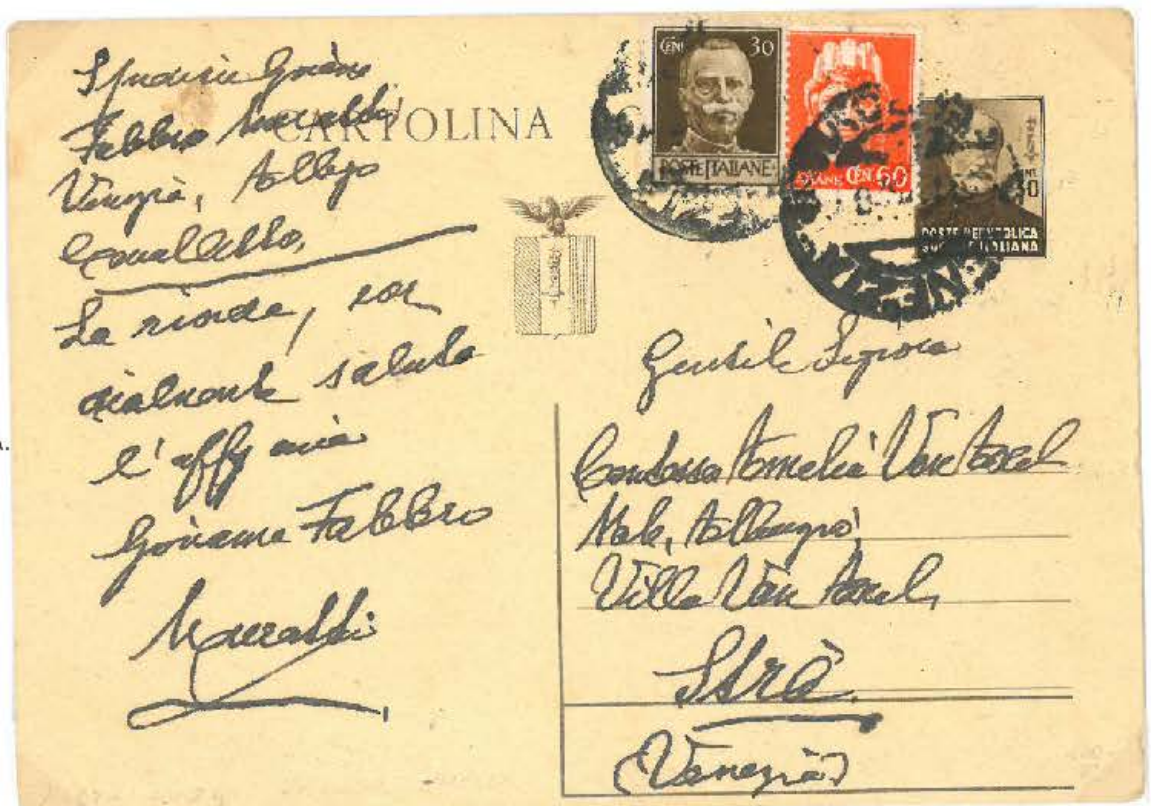 Giovane
Fabbro Maraldi
Venezia, Albergo
Cavalletto
La rivede, cor
dialmente saluta
l'aff mia
Giovanna Fabbro
Maraldi
CARTOLINA
CEN 30
POSTE ITALIANE
CEN. 60
POSTE REPUBBLICA
SOCIALE ITALIANA
Gentile Signora
Contessa Amelia Van Axel
Villa Van Axel,
Strà
(Venezia)